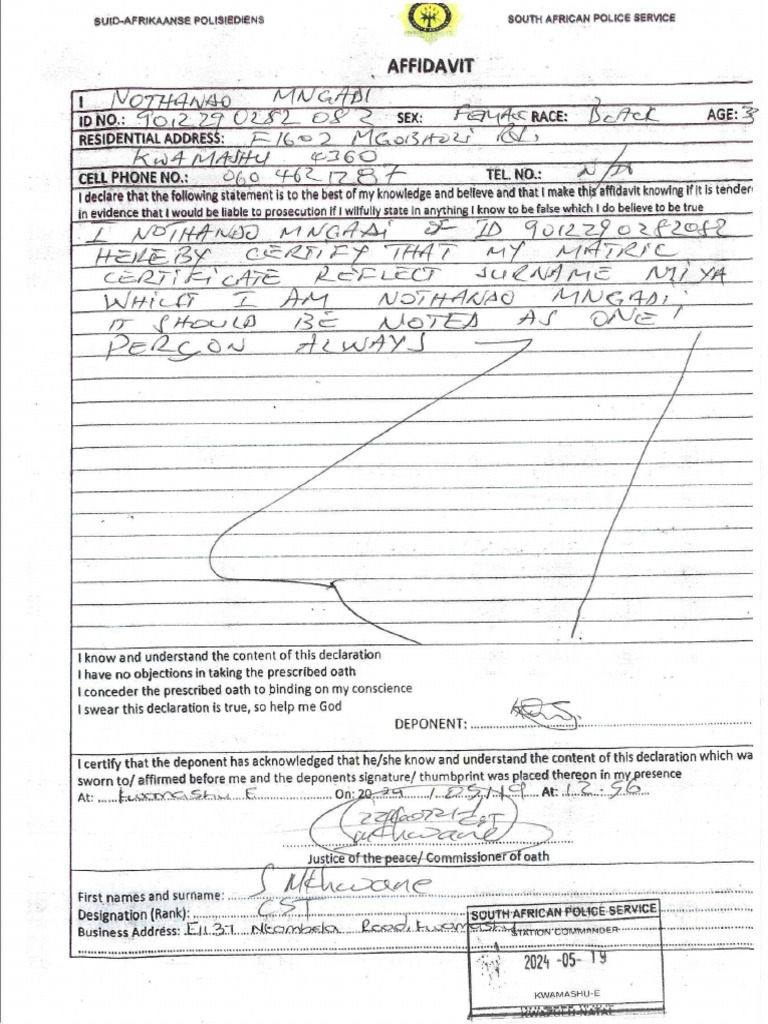 SUID-AFRIKAANSE POLISIEDIENS SOUTH AFRICAN POLICE SERVICE
AFFIDAVIT
I NOTHANDO MNGADI
ID NO.: 901229 0282 082 SEX: FEMALE RACE: BLACK AGE: 3
RESIDENTIAL ADDRESS: E1602 RD,
KWAMASHU 4360
CELL PHONE NO.: 060 462 1287 TEL. NO.: N/A
I declare that the following statement is to the best of my knowledge and believe and that I make this affidavit knowing if it is tender
in evidence that I would be liable to prosecution if I wilfully state in anything I know to be false which I do believe to be true
I NOTHANDO MNGADI OF ID 9012290282082
HEREBY CERTIFY THAT MY MATRIC
CERTIFICATE REFLECT SURNAME MIYA
WHILST I AM NOTHANDO MNGADI
IT SHOULD BE NOTED AS ONE
PERSON ALWAYS
I know and understand the content of this declaration
I have no objections in taking the prescribed oath
I conceder the prescribed oath to binding on my conscience
I swear this declaration is true, so help me God
DEPONENT:
I certify that the deponent has acknowledged that he/she know and understand the content of this declaration which wa
sworn to/ affirmed before me and the deponents signature/ thumbprint was placed thereon in my presence
At: Kwamashu E On: 2024 / 05/19 At: 12:56
CST
Mthwane
Justice of the peace/ Commissioner of oath
First names and surname: S Mthwane
Designation (Rank): CST
Business Address: E1137 Ntombela Road, Kwamashu
SOUTH AFRICAN POLICE SERVICE
STATION COMMANDER
2024 -05- 19
KWAMASHU-E
KWAZULU-NATAL